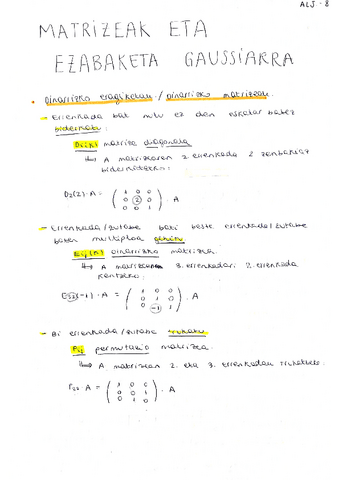 ALJ.-8
MATRIZEAK ETA
EZABAKETA GAUSSIARRA
• Oinarrizko eragiketak / oinarrizko matrizeak.
- Errenkada bat nulu ez den eskalar batez
biderkatu:
Di(k) matrize diagonala
↳ A matrizearen 2. errenkada 2 zenbakiaz
biderkatzeko:
D2(2) · A = ( 1 0 0
0 2 0
0 0 1 ) · A
- Errenkada/zutabe bati beste errenkada/zutabe
baten multiploa gehitu
Eij(k) oinarrizko matrizea.
↳ A matrizearen 3. errenkadari 2. errenkada
kentzeko:
E32(-1) · A = ( 1 0 0
0 1 0
0 -1 1 ) · A
- Bi errenkada/zutabe trukatu
Pij permutazio matrizea.
↳ A matrizean 2. eta 3. errenkadak trukatzeko.
P23 · A = ( 1 0 0
0 0 1
0 1 0 ) · A